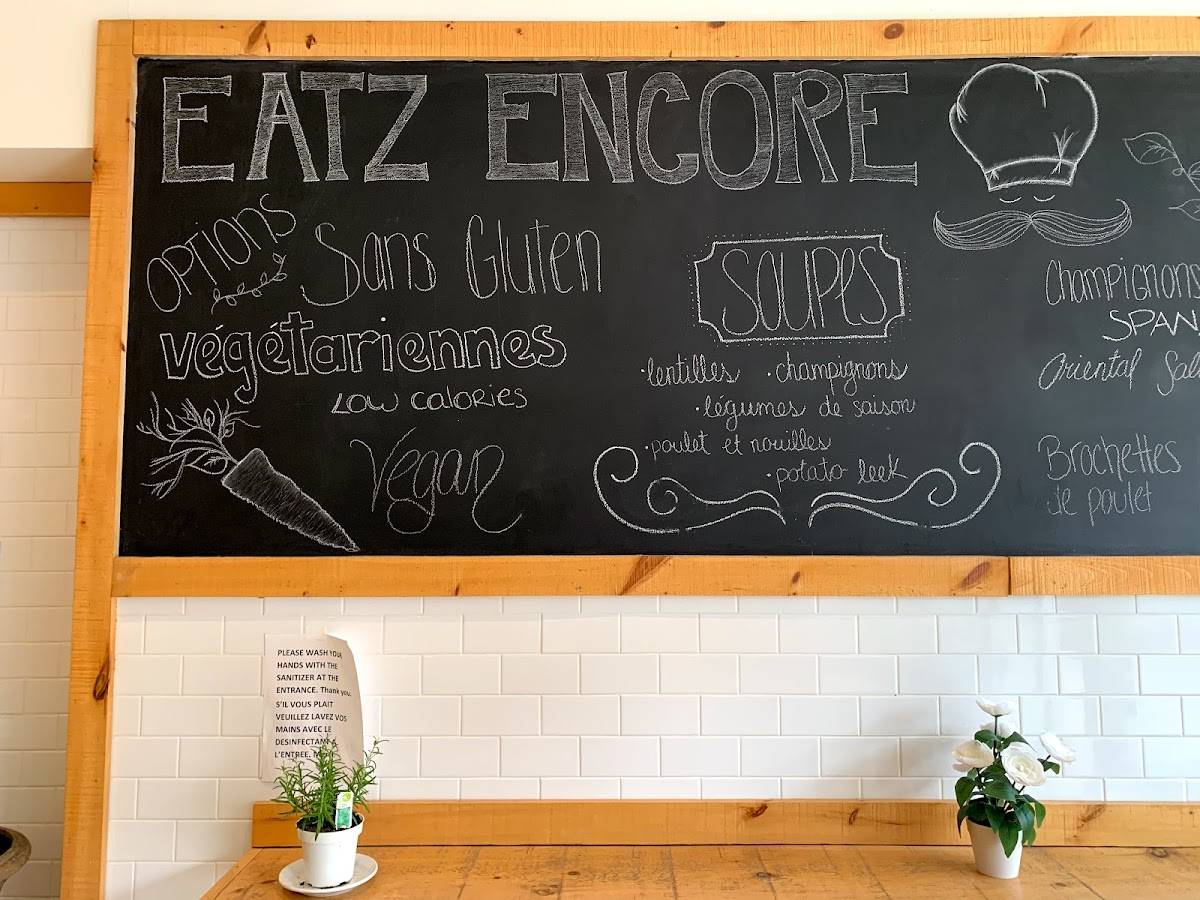 EATZ ENCORE
OPTIONS Sans Gluten
végétariennes
LOW calories
Vegan
SOUPES
·lentilles ·champignons
·légumes de saison
·poulet et nouilles
·potato leek
Champignons
Oriental
Brochettes
de poulet
PLEASE WASH YOUR
HANDS WITH THE
SANITIZER AT THE
ENTRANCE. Thank you.
S'IL VOUS PLAIT
VEUILLEZ LAVEZ VOS
MAINS AVEC LE
DESINFECTANT A
L'ENTREE.